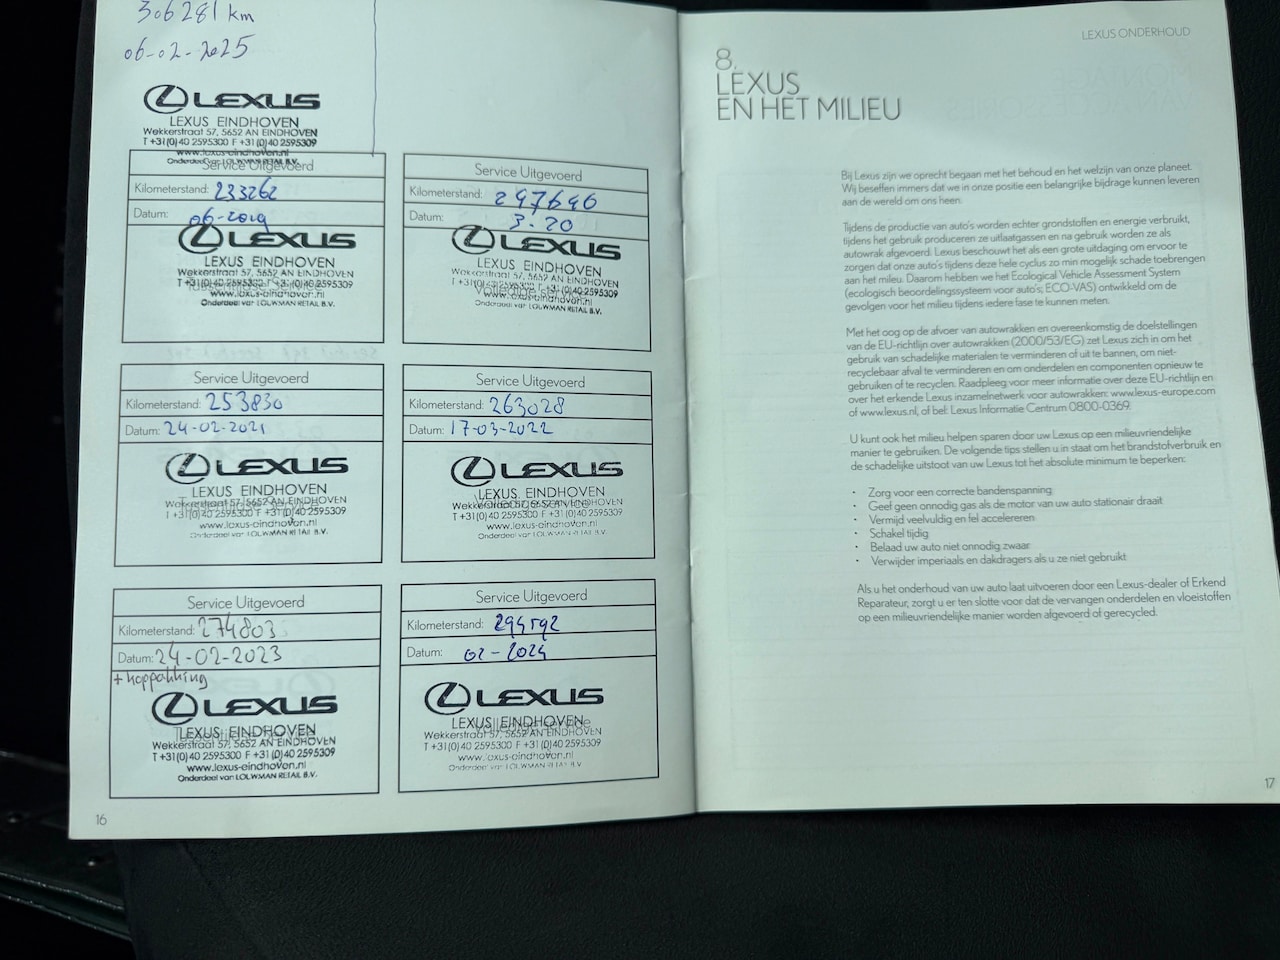 306281 km
06-02-2025
LEXUS
LEXUS EINDHOVEN
Wekkerstraat 57, 5652 AN EINDHOVEN
T +31(0)40 2595300 F +31(0)40 2595309
www.lexus-eindhoven.nl
Onderdeel van LOUWMAN RETAIL B.V.
Service Uitgevoerd
Kilometerstand: 233262
Datum: 06-2019
LEXUS
LEXUS EINDHOVEN
Wekkerstraat 57, 5652 AN EINDHOVEN
T +31(0)40 2595300 F +31(0)40 2595309
www.lexus-eindhoven.nl
Onderdeel van LOUWMAN RETAIL B.V.
Service Uitgevoerd
Kilometerstand: 247646
Datum: 3-20
LEXUS
LEXUS EINDHOVEN
Wekkerstraat 57, 5652 AN EINDHOVEN
T +31(0)40 2595300 F +31(0)40 2595309
www.lexus-eindhoven.nl
Onderdeel van LOUWMAN RETAIL B.V.
Service Uitgevoerd
Kilometerstand: 253830
Datum: 24-02-2021
LEXUS
LEXUS EINDHOVEN
Wekkerstraat 57, 5652 AN EINDHOVEN
T +31(0)40 2595300 F +31(0)40 2595309
www.lexus-eindhoven.nl
Onderdeel van LOUWMAN RETAIL B.V.
Service Uitgevoerd
Kilometerstand: 263028
Datum: 17-03-2022
LEXUS
LEXUS EINDHOVEN
Wekkerstraat 57, 5652 AN EINDHOVEN
T +31(0)40 2595300 F +31(0)40 2595309
www.lexus-eindhoven.nl
Onderdeel van LOUWMAN RETAIL B.V.
Service Uitgevoerd
Kilometerstand: 274803
Datum: 24-02-2023
+ koppakking
LEXUS
LEXUS EINDHOVEN
Wekkerstraat 57, 5652 AN EINDHOVEN
T +31(0)40 2595300 F +31(0)40 2595309
www.lexus-eindhoven.nl
Onderdeel van LOUWMAN RETAIL B.V.
Service Uitgevoerd
Kilometerstand:
Datum: 02-2024
LEXUS
LEXUS EINDHOVEN
Volledige service
Wekkerstraat 57, 5652 AN EINDHOVEN
T +31(0)40 2595300 F +31(0)40 2595309
www.lexus-eindhoven.nl
Onderdeel van LOUWMAN RETAIL B.V.
16
LEXUS ONDERHOUD
8.
LEXUS
EN HET MILIEU
Bij Lexus zijn we oprecht begaan met het behoud en het welzijn van onze planeet.
Wij beseffen immers dat we in onze positie een belangrijke bijdrage kunnen leveren
aan de wereld om ons heen.
Tijdens de productie van auto's worden echter grondstoffen en energie verbruikt,
tijdens het gebruik produceren ze uitlaatgassen en na gebruik worden ze als
autowrak afgevoerd. Lexus beschouwt het als een grote uitdaging om ervoor te
zorgen dat onze auto's tijdens deze hele cyclus zo min mogelijk schade toebrengen
aan het milieu. Daarom hebben we het Ecological Vehicle Assessment System
(ecologisch beoordelingssysteem voor auto's; ECO-VAS) ontwikkeld om de
gevolgen voor het milieu tijdens iedere fase te kunnen meten.
Met het oog op de afvoer van autowrakken en overeenkomstig de doelstellingen
van de EU-richtlijn over autowrakken (2000/53/EG) zet Lexus zich in om het
gebruik van schadelijke materialen te verminderen of uit te bannen, om niet-
recyclebaar afval te verminderen en om onderdelen en componenten opnieuw te
gebruiken of te recyclen. Raadpleeg voor meer informatie over deze EU-richtlijn en
over het erkende Lexus inzamelnetwerk voor autowrakken: www.lexus-europe.com
of www.lexus.nl, of bel: Lexus Informatie Centrum 0800-0369.
U kunt ook het milieu helpen sparen door uw Lexus op een milieuvriendelijke
manier te gebruiken. De volgende tips stellen u in staat om het brandstofverbruik en
de schadelijke uitstoot van uw Lexus tot het absolute minimum te beperken:
• Zorg voor een correcte bandenspanning
• Geef geen onnodig gas als de motor van uw auto stationair draait
• Vermijd veelvuldig en fel accelereren
• Schakel tijdig
• Belaad uw auto niet onnodig zwaar
• Verwijder imperiaals en dakdragers als u ze niet gebruikt
Als u het onderhoud van uw auto laat uitvoeren door een Lexus-dealer of Erkend
Reparateur, zorgt u er ten slotte voor dat de vervangen onderdelen en vloeistoffen
op een milieuvriendelijke manier worden afgevoerd of gerecycled.
17